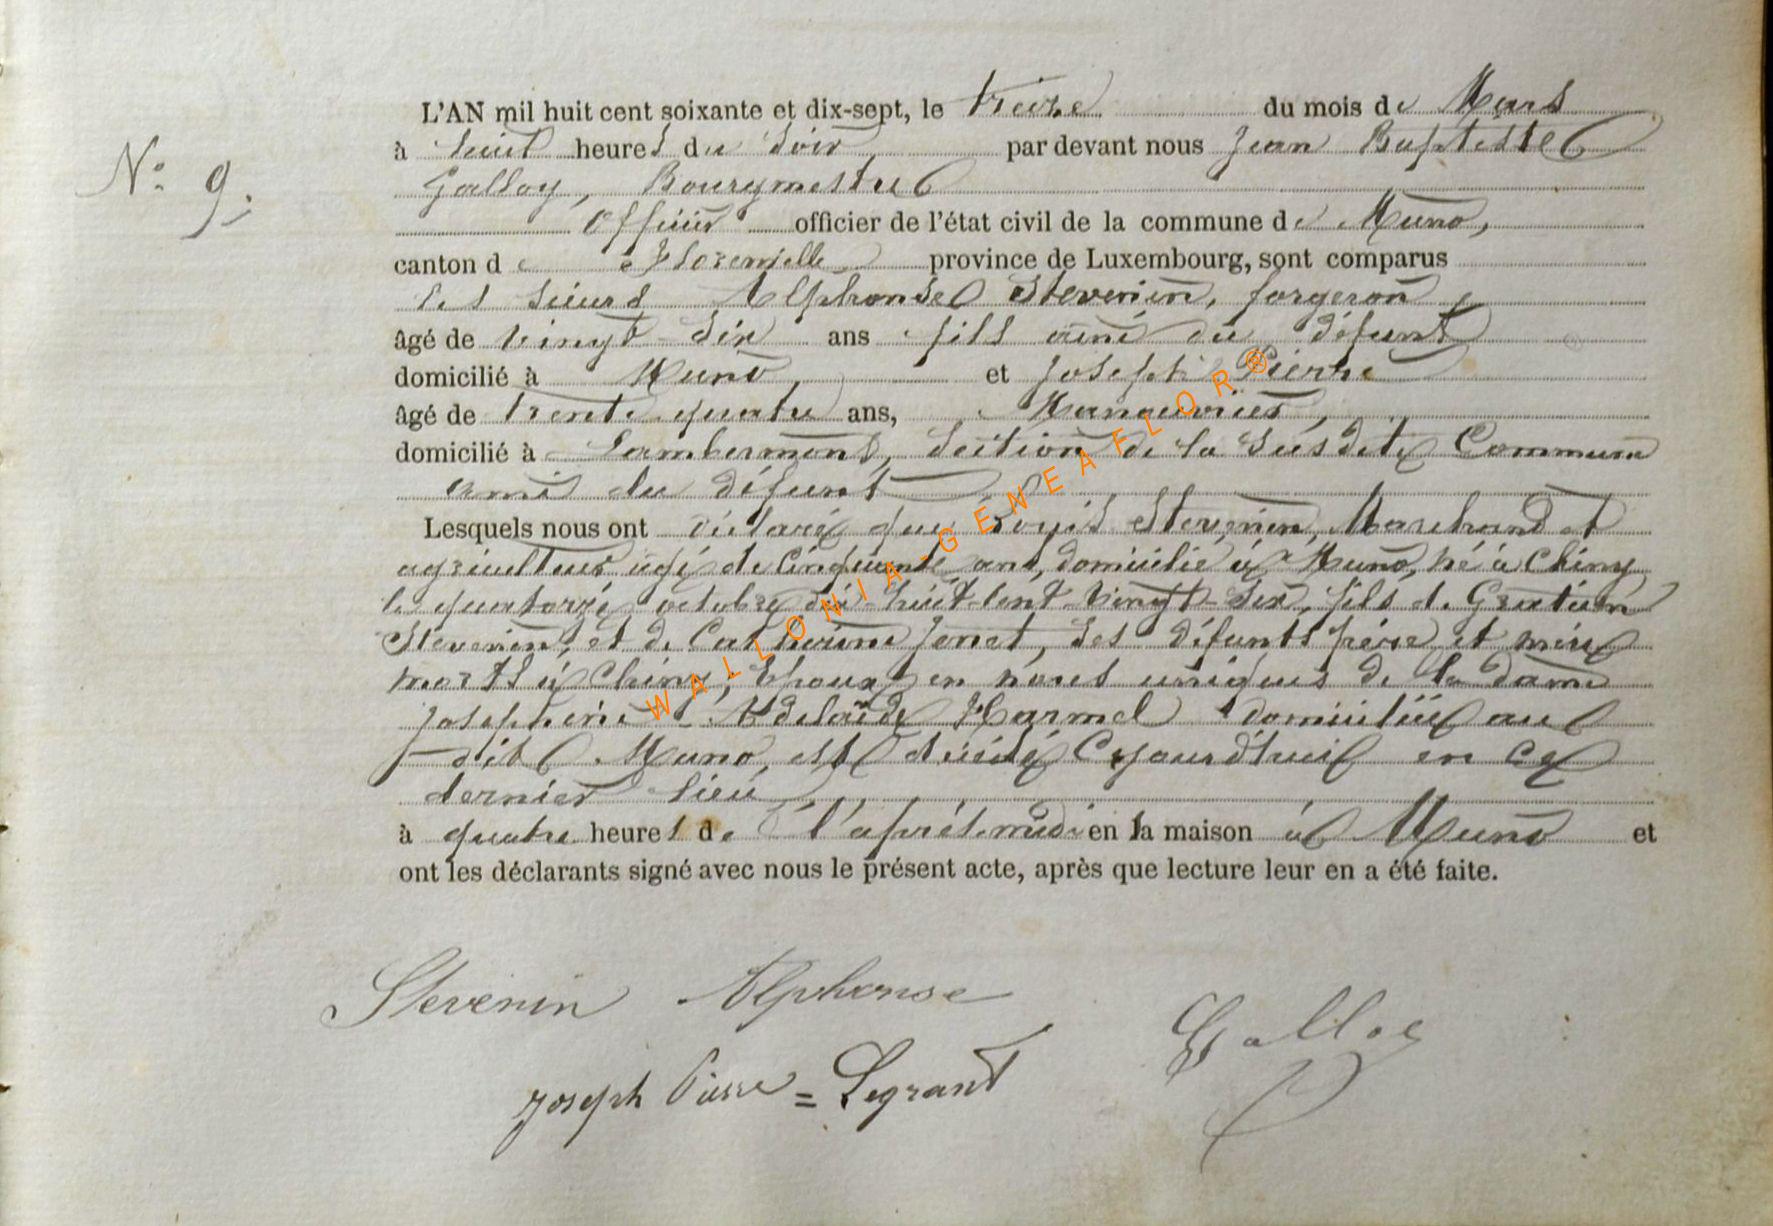 L'AN mil huit cent soixante et dix-sept, le treize du mois de Mars
N° 9.
à huit heures du soir, par devant nous Jean Baptiste
Galloy, Bourgmestre
Officier officier de l'état civil de la commune de Muno,
canton de Florenville province de Luxembourg, sont comparus
les sieurs Alphonse Stevenin, forgeron,
âgé de vingt-six ans fils ainé du défunt
domicilié à Muno, et Joseph Pierre
âgé de trente-quatre ans, Manouvrier,
domicilié à Lambermont, section de la susdite Commune
ami du défunt
Lesquels nous ont déclaré que Louis Stevenin, Marchand et
agriculteur, agé de Cinquante ans, domicilié à Muno, né à Chiny
le quatorze octobre dix-huit-cent-vingt-six, fils de Gratien
Stevenin, et de Catherine Jenet, ses défunts père et mère
morts à Chiny, Epoux en noces uniques de la dame
Josephine-Adelaïde Harmel domiciliée au
dit Muno, est décédé Cejourd'huil en ce
dernier lieu
à quatre heures de l'après-midi en la maison à Muno et
ont les déclarants signé avec nous le présent acte, après que lecture leur en a été faite.
Stevenin Alphonse
Galloy
Joseph Pierre = Legrant
WALLONIA-GENEAFLOR®